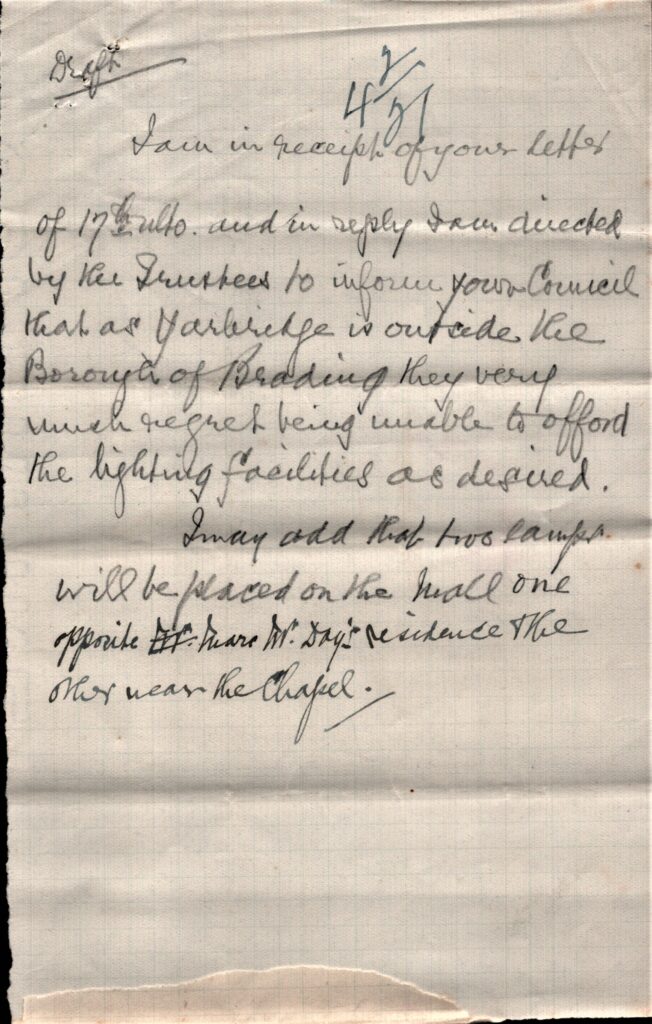 Draft
4/2/21
I am in receipt of your letter
of 17th ulto. and in reply I am directed
by the Trustees to inform your Council
that as Yarbridge is outside the
Borough of Brading they very
much regret being unable to afford
the lighting facilities as desired.
I may add that two lamps
will be placed on the Mall one
opposite Mr. Day's residence & the
other near the Chapel.